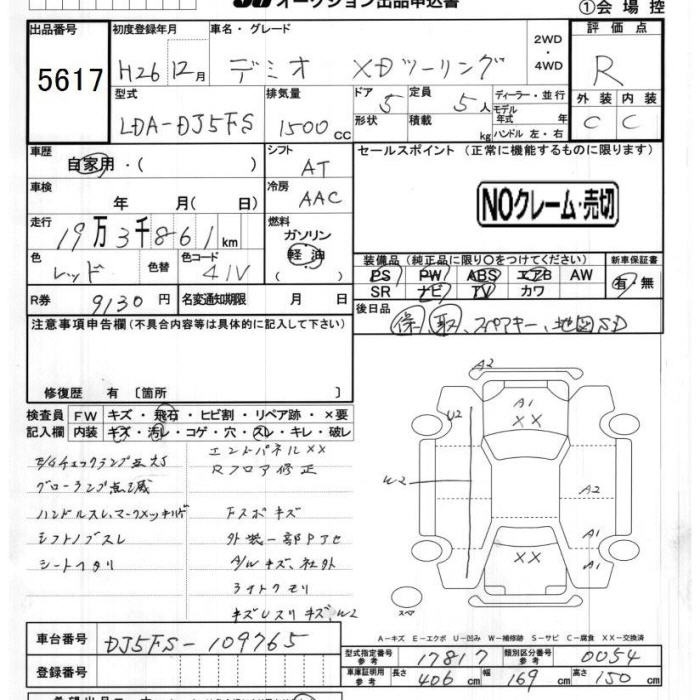 オークション出品申込書
①会場控
出品番号 初度登録年月 車名・グレード 2WD ・4WD 評価点
5617 H26 12月 デミオ XDツーリング R
型式 排気量 ドア 5 定員 5人 ディーラー・並行 外装 内装
LDA-DJ5FS 1500cc 形状 積載 kg モデル年式 年 ハンドル 左・右 C C
車歴 自家用・( ) シフト AT セールスポイント(正常に機能するものに限ります)
車検 年 月( 日) 冷房 AAC
NOクレーム・売切
走行 19万3千861km 燃料 ガソリン 軽油 ( )
装備品(純正品に限り○をつけてください) 新車保証書
色 レッド 色替 色コード 41V
PS PW ABS エアB AW 有・無
SR ナビ TV カワ
R券 9130円 名変通知期限 月 日
後日品 保、取、スペアキー、地図SD
注意事項申告欄(不具合内容等は具体的に記入して下さい)
修復歴 有〔箇所 〕
検査員 FW キズ・飛石・ヒビ割・リペア跡・×要
記入欄 内装 キズ・汚レ・コゲ・穴・スレ・キレ・破レ
エンドパネルXX
E/Gチェックランプ点灯
Rフロア修正
グローランプ点滅
ハンドルスレ、マークメッキハゲ
下スポキズ
シフトノブスレ
外装一部Pアセ
シートヘタリ
A/Wキズ、社外
ライトクモリ
A2
A1
XX
U2
W2
A2
A1
XX
A1
スペア
A-キズ E-エクボ U-凹み W-補修跡 S-サビ C-腐食 XX-交換済
車台番号 DJ5FS-109765
登録番号
型式指定番号 参考 17817 類別区分番号 参考 0054
車庫証明用 参考 長さ 406cm 幅 169cm 高さ 150cm